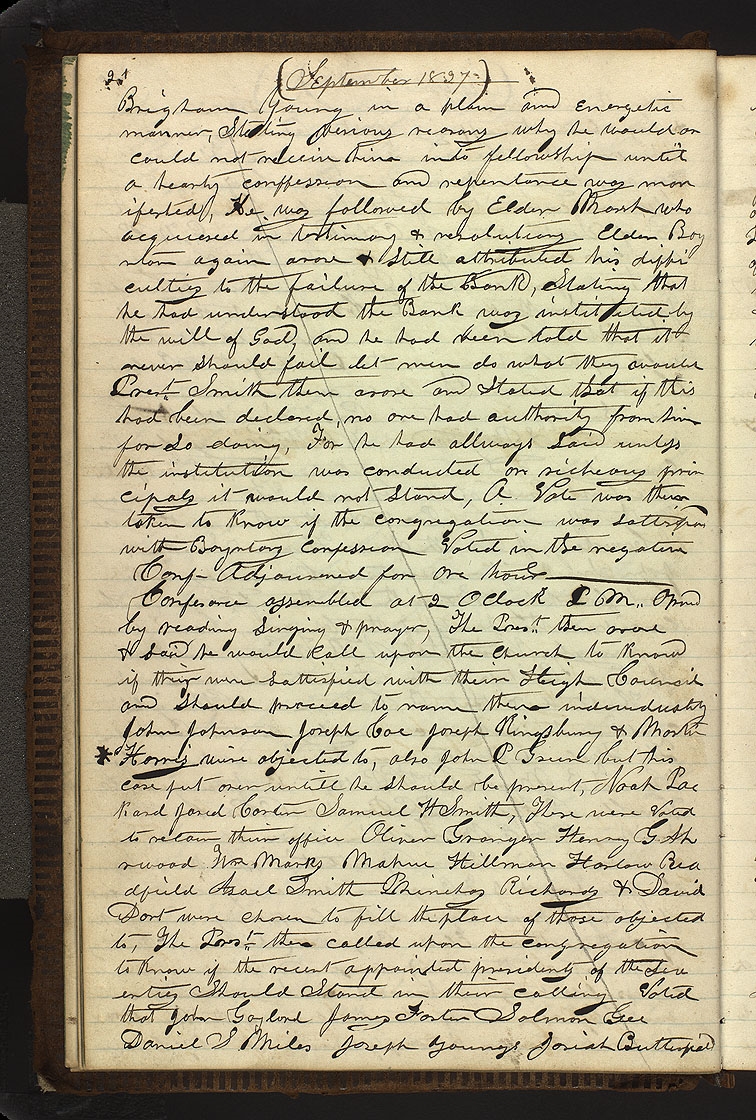 24 (September 1837)
Brigham Young in a plain and energetic
manner, Stating verious reasons why he would or
could not receive him into fellowship until
a hearty conffession and repentance was man
ifested, He was followed by Elder Marsh who
acquiesed in testimony & resolutions Elder Boy
nton again arose & Still attributed his diffi
culties to the failure of the Bank, Stating that
he had understood the Bank was instituted by
the will of God, and he had been told that it
never should fail let men do what they would
Prest. Smith then arose and Stated that if this
had been declared, no one had authority from him
for So doing, For he had allways said unless
the institution was conducted on richeous prin
cipals it would not Stand, A Vote was then
taken to know if the congregation was sattisfied
with Boyntons Confession Voted in the negative
Conf- Adjourned for one hour
Conferance assembled at 2 Oclock P M,, Opned
by reading Singing & prayer, The Prest. then arose
& Said he would call upon the church to know
if they were sattisfied with their High Council
and should proceed to name them individually
John Johnson Joseph Coe Joseph Kingsbury & Martin
* Harris were objected to, also John P Green but his
case put over untill he should be present, Noah Pac
kard Jared Carter Samuel H Smith, These were Voted
to retain their office Oliver Granger Henry G. Sh
erwood Wm Marks Mahue Hillman Harlow Rea
dfield Asael Smith Phinehas Richards & David
Dort were chosen to fill the place of those objected
to, The Prest. then called upon the congregation
to know if the recent appointed presidents of the Sev
enties Should Stand in their calling Voted
that John Gaylord James Foster Salmon Gee
Daniel S Miles Joseph Youngs Josiah Butterfield